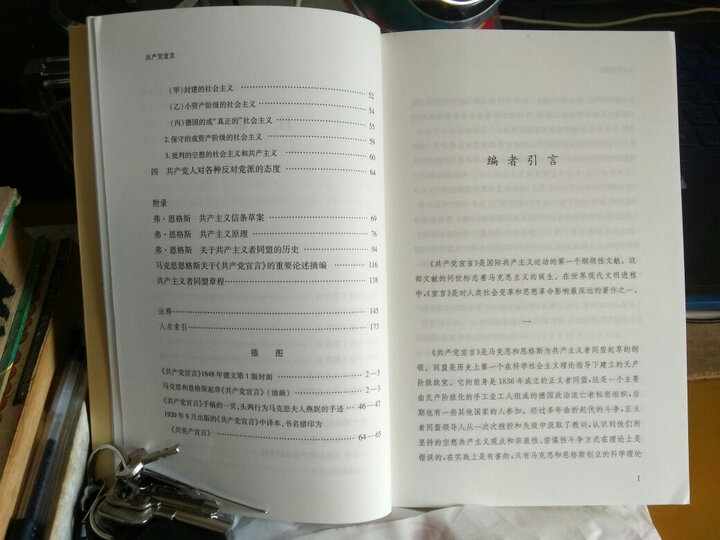 共产党宣言
（甲）封建的社会主义 …… 52
（乙）小资产阶级的社会主义 …… 54
（丙）德国的或“真正的”社会主义 …… 55
2. 保守的或资产阶级的社会主义 …… 59
3. 批判的空想的社会主义和共产主义 …… 60
四 共产党人对各种反对党派的态度 …… 64
附录
弗·恩格斯 共产主义信条草案 …… 69
弗·恩格斯 共产主义原理 …… 76
弗·恩格斯 关于共产主义者同盟的历史 …… 94
马克思恩格斯关于《共产党宣言》的重要论述摘编 …… 116
共产主义者同盟章程 …… 138
注释 …… 145
人名索引 …… 173
插图
《共产党宣言》1848年德文第1版封面 …… 2—3
马克思和恩格斯起草《共产党宣言》（油画） …… 2—3
《共产党宣言》手稿的一页，头两行为马克思夫人燕妮的手迹 …… 46—47
1920年8月出版的《共产党宣言》中译本，书名错印为
《共党产宣言》 …… 64—65
编者引言
《共产党宣言》是国际共产主义运动的第一个纲领性文献。这
部文献的问世标志着马克思主义的诞生。在世界现代文明进程
中，《宣言》是对人类社会变革和思想革命影响最深远的著作之一。
一
《共产党宣言》是马克思和恩格斯为共产主义者同盟起草的纲
领。同盟是历史上第一个在科学社会主义理论指导下建立的无产
阶级政党。它的前身是1836年成立的正义者同盟，这是一个主要
由无产阶级化的手工业工人组成的德国政治流亡者秘密组织，后
期也有一些其他国家的人参加。经过多年曲折起伏的斗争，正义
者同盟领导人从一次次挫折和失败中汲取了教训，认识到他们所
坚持的空想共产主义观点和宗派性、密谋性斗争方式在理论上是
错误的，在实践上是有害的，只有马克思和恩格斯创立的科学理论
1